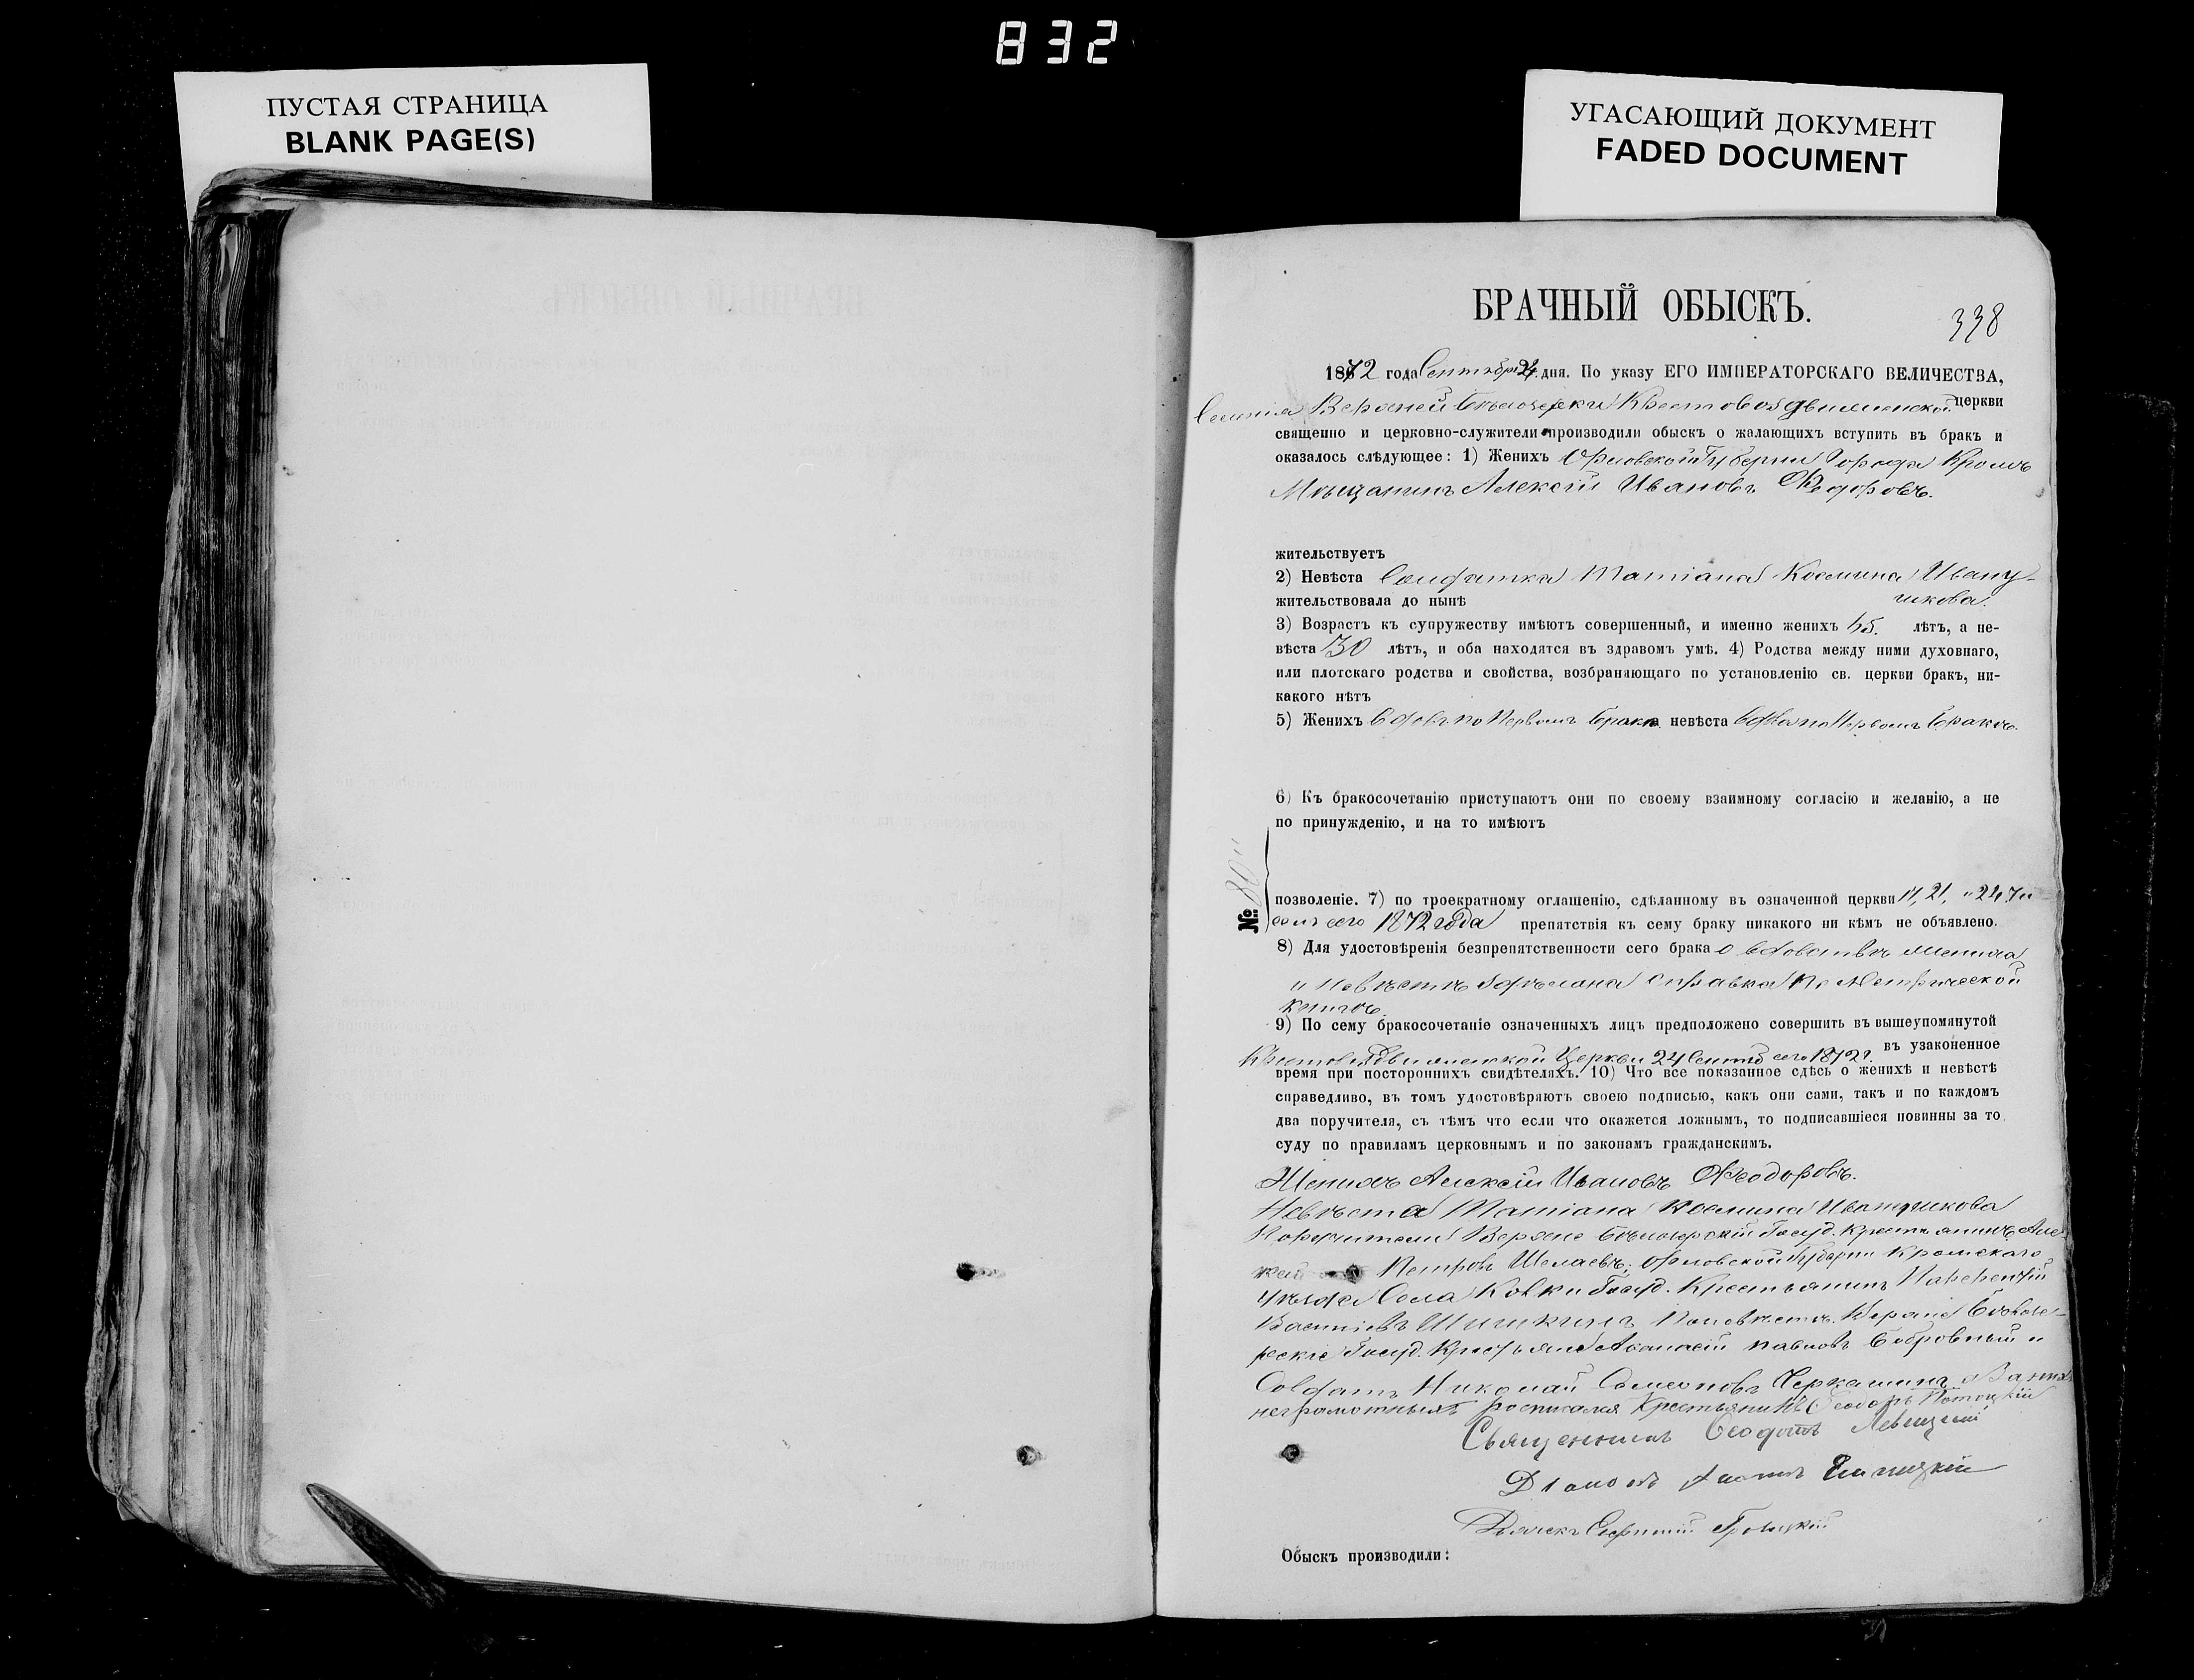 832
ПУСТАЯ СТРАНИЦА
BLANK PAGE(S)
УГАСАЮЩИЙ ДОКУМЕНТ
FADED DOCUMENT
БРАЧНЫЙ ОБЫСКЪ.
338
1872 года Сентября 24 дня. По указу ЕГО ИМПЕРАТОРСКАГО ВЕЛИЧЕСТВА,
Крестовоздвиженской церкви
священно и церковно-служители производили обыскъ о жалающихъ вступить въ бракъ и
оказалось слѣдующее: 1) Женихъ Орловской Губерніи Города Кромъ
Мѣщанинъ Алексій Ивановъ Ѳедоровъ.
жительствуетъ
2) Невѣста Солдатка Татіана Космина Ивану-
жительствовала до нынѣ шкова.
3) Возрастъ къ супружеству имѣютъ совершенный, и именно женихъ 45. лѣтъ, а не-
вѣста 30 лѣтъ, и оба находятся въ здравомъ умѣ. 4) Родства между ними духовнаго,
или плотскаго родства и свойства, возбраняющаго по установленію св. церкви бракъ, ни-
какого нѣтъ
5) Женихъ вдовъ по Первомъ бракѣ невѣста вдова по Первомъ бракѣ.
6) Къ бракосочетанію приступаютъ они по своему взаимному согласію и желанію, а не
по принужденію, и на то имѣютъ
№ 80
позволеніе. 7) по троекратному оглашенію, сдѣланному въ означенной церкви 17, 21, и 24
сего 1872 года препятствія къ сему браку никакого ни кѣмъ не объявлено.
8) Для удостовѣренія безпрепятственности сего брака о вдовствѣ жениха
и Невѣсты сдѣлана справка по Метрической
книгѣ.
9) По сему бракосочетаніе означенныхъ лицъ предположено совершить въ вышеупомянутой
Крестовоздвиженской Церкви 24 Сентяб сего 1872 г. въ узаконенное
время при постороннихъ свидѣтеляхъ. 10) Что все показанное сдѣсь о женихѣ и невѣстѣ
справедливо, въ томъ удостовѣряютъ своею подписью, какъ они сами, такъ и по каждомъ
два поручителя, съ тѣмъ что если что окажется ложнымъ, то подписавшіеся повинны за то
суду по правиламъ церковнымъ и по законамъ гражданскимъ.
Женихъ Алексій Ивановъ Ѳеодоровъ.
Невѣста Татіана Космина Иванушкова
Поручители Государ. Крестьянинъ Але
ксей Петровъ Шелаевъ; Орловской Губерніи Кромскаго
уѣзда Села Ковки Госуд. Крестьянинъ Парѳентій
Василіевъ Шишкинъ По невѣстѣ
Госуд. Крестьяне Аѳанасій Павловъ Бобровный и
Солдатъ Николай Семеновъ Черкашинъ а За нихъ
неграмотныхъ росписался Крестьянинъ Ѳеодоръ
Священникъ Ѳеодотъ Левицкій
Діаконъ
Дьячекъ Троицкій
Обыскъ производили: